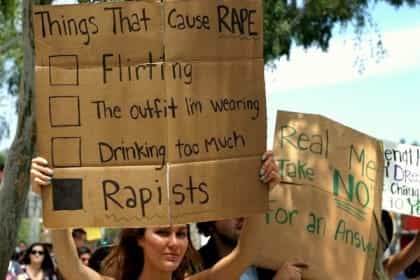 Things That Cause RAPE
Flirting
The outfit I'm wearing
Drinking too much
Rapists
Real Me
Take NO
For an Answer